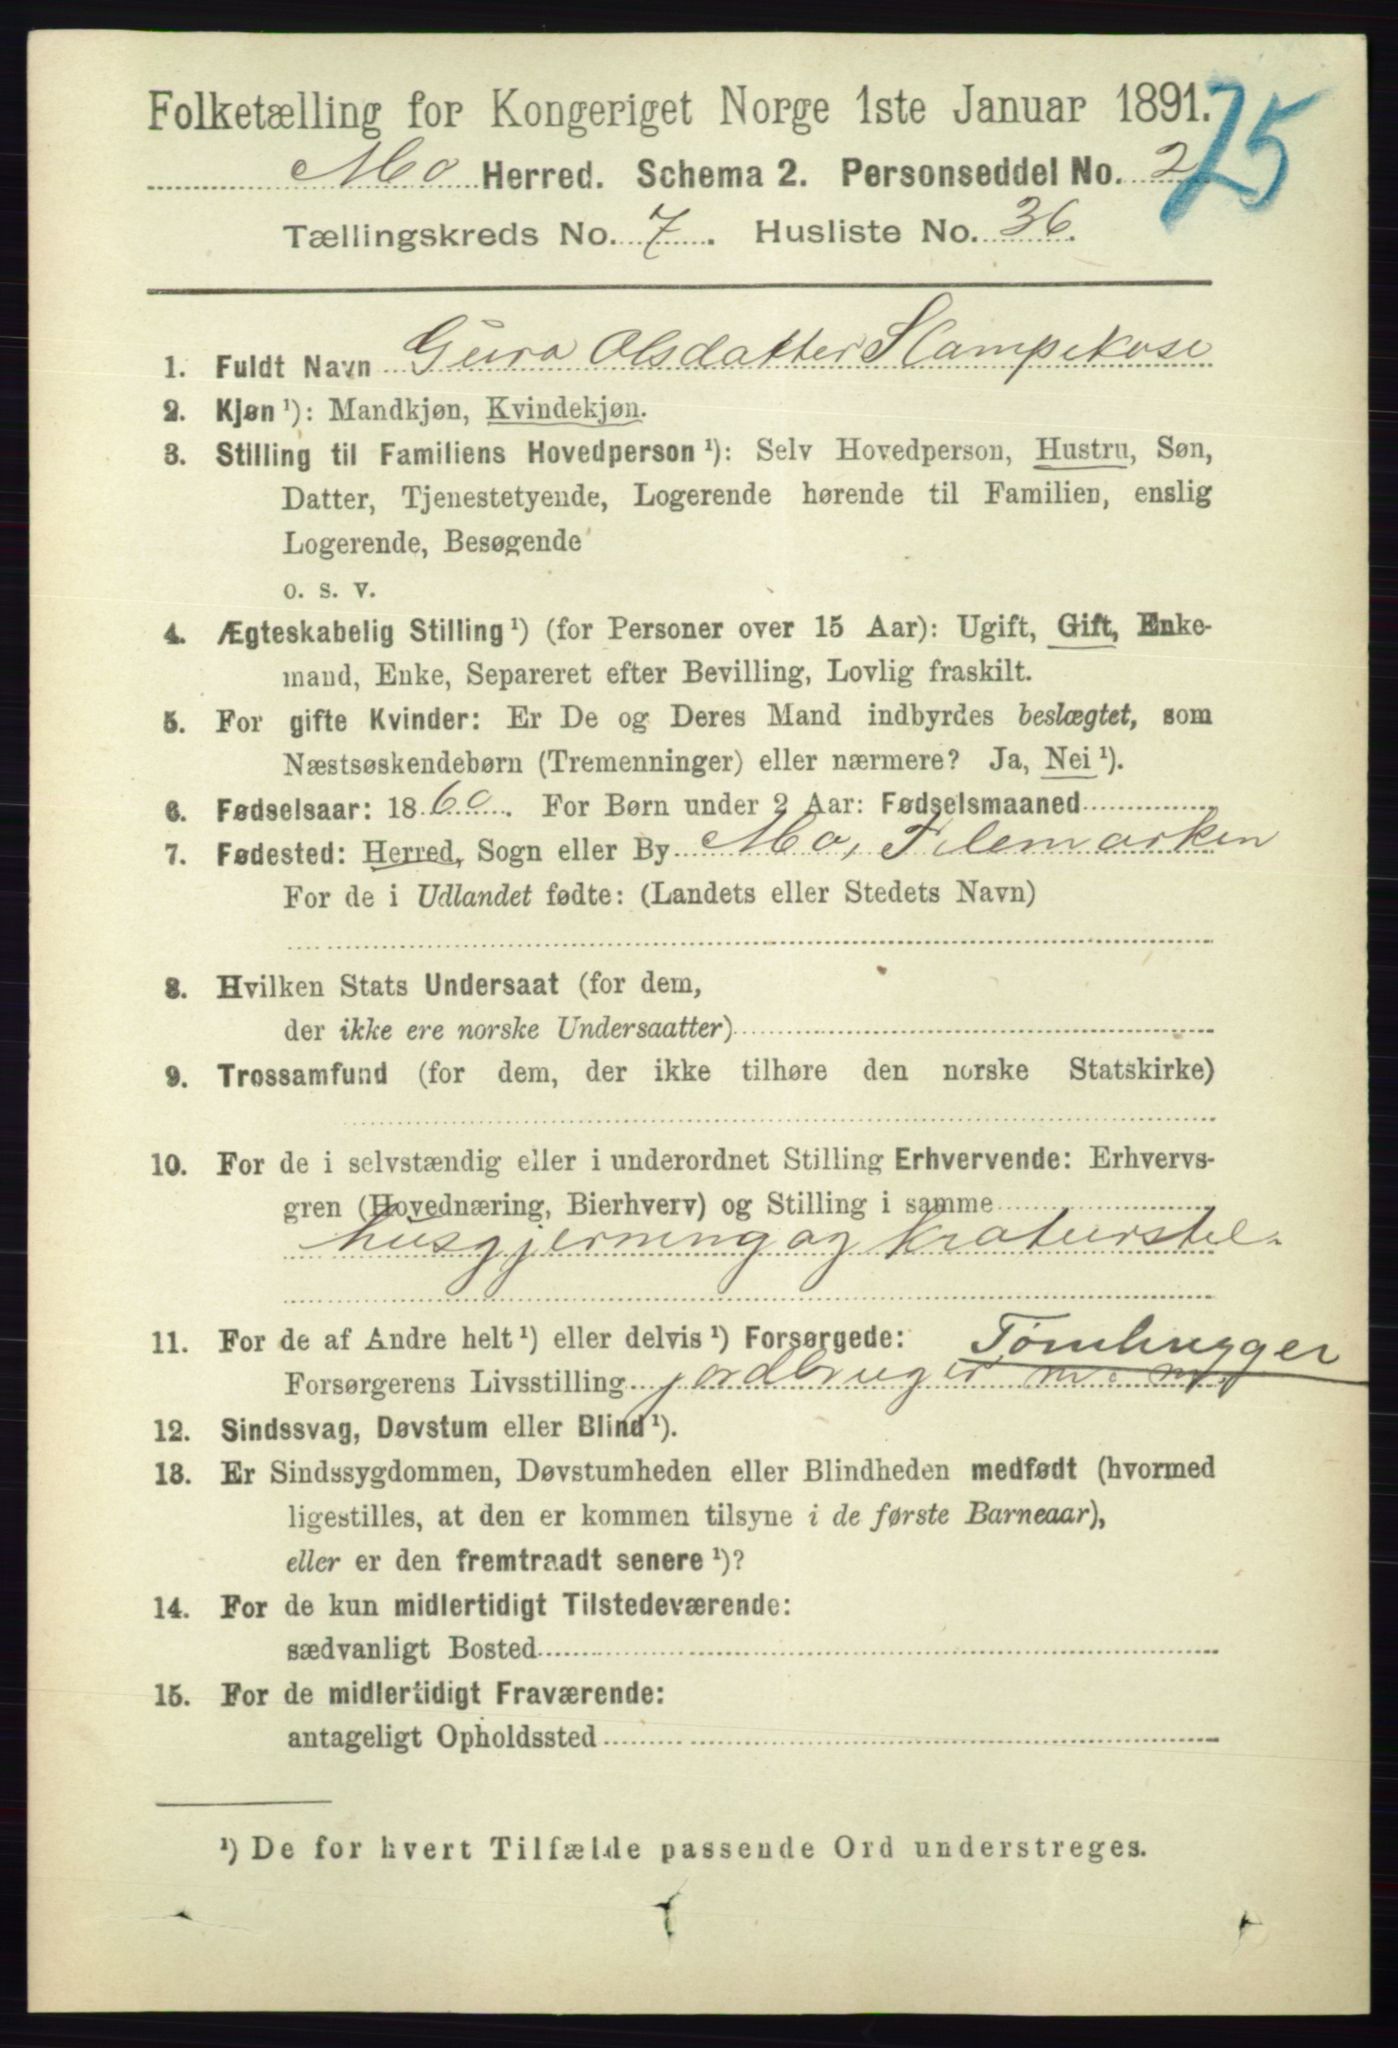 Folketælling for Kongeriget Norge 1ste Januar 1891.
75
Mo Herred. Schema 2. Personseddel No. 2
Tællingskreds No. 7. Husliste No. 36.
1. Fuldt Navn Guro Olsdatter Stampekose
2. Kjøn ¹): Mandkjøn, Kvindekjøn.
3. Stilling til Familiens Hovedperson ¹): Selv Hovedperson, Hustru, Søn,
Datter, Tjenestetyende, Logerende hørende til Familien, enslig
Logerende, Besøgende
o. s. v.
4. Ægteskabelig Stilling ¹) (for Personer over 15 Aar): Ugift, Gift, Enke-
mand, Enke, Separeret efter Bevilling, Lovlig fraskilt.
5. For gifte Kvinder: Er De og Deres Mand indbyrdes beslægtet, som
Næstsøskendebørn (Tremenninger) eller nærmere? Ja, Nei ¹).
6. Fødselsaar: 1860. For Børn under 2 Aar: Fødselsmaaned
7. Fødested: Herred, Sogn eller By Mo, Tilemarken
For de i Udlandet fødte: (Landets eller Stedets Navn)
8. Hvilken Stats Undersaat (for dem,
der ikke ere norske Undersaatter)
9. Trossamfund (for dem, der ikke tilhøre den norske Statskirke)
10. For de i selvstændig eller i underordnet Stilling Erhvervende: Erhvervs-
gren (Hovednæring, Bierhverv) og Stilling i samme
husgjerning og kraturstel
11. For de af Andre helt ¹) eller delvis ¹) Forsørgede: Tømhugger
Forsørgerens Livsstilling jordbruger m. m.
12. Sindssvag, Døvstum eller Blind ¹).
13. Er Sindssygdommen, Døvstumheden eller Blindheden medfødt (hvormed
ligestilles, at den er kommen tilsyne i de første Barneaar),
eller er den fremtraadt senere ¹)?
14. For de kun midlertidigt Tilstedeværende:
sædvanligt Bosted
15. For de midlertidigt Fraværende:
antageligt Opholdssted
¹) De for hvert Tilfælde passende Ord understreges.